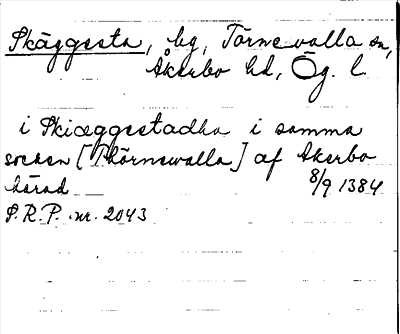 Skäggesta, by, Törnevalla sn,
Åkerbo hd, Ög. l.
i Skiæggestadha i samma
socken [Thörnewalla] af Akerbo
härad 8/9 1384
S.R.P. nr. 2043